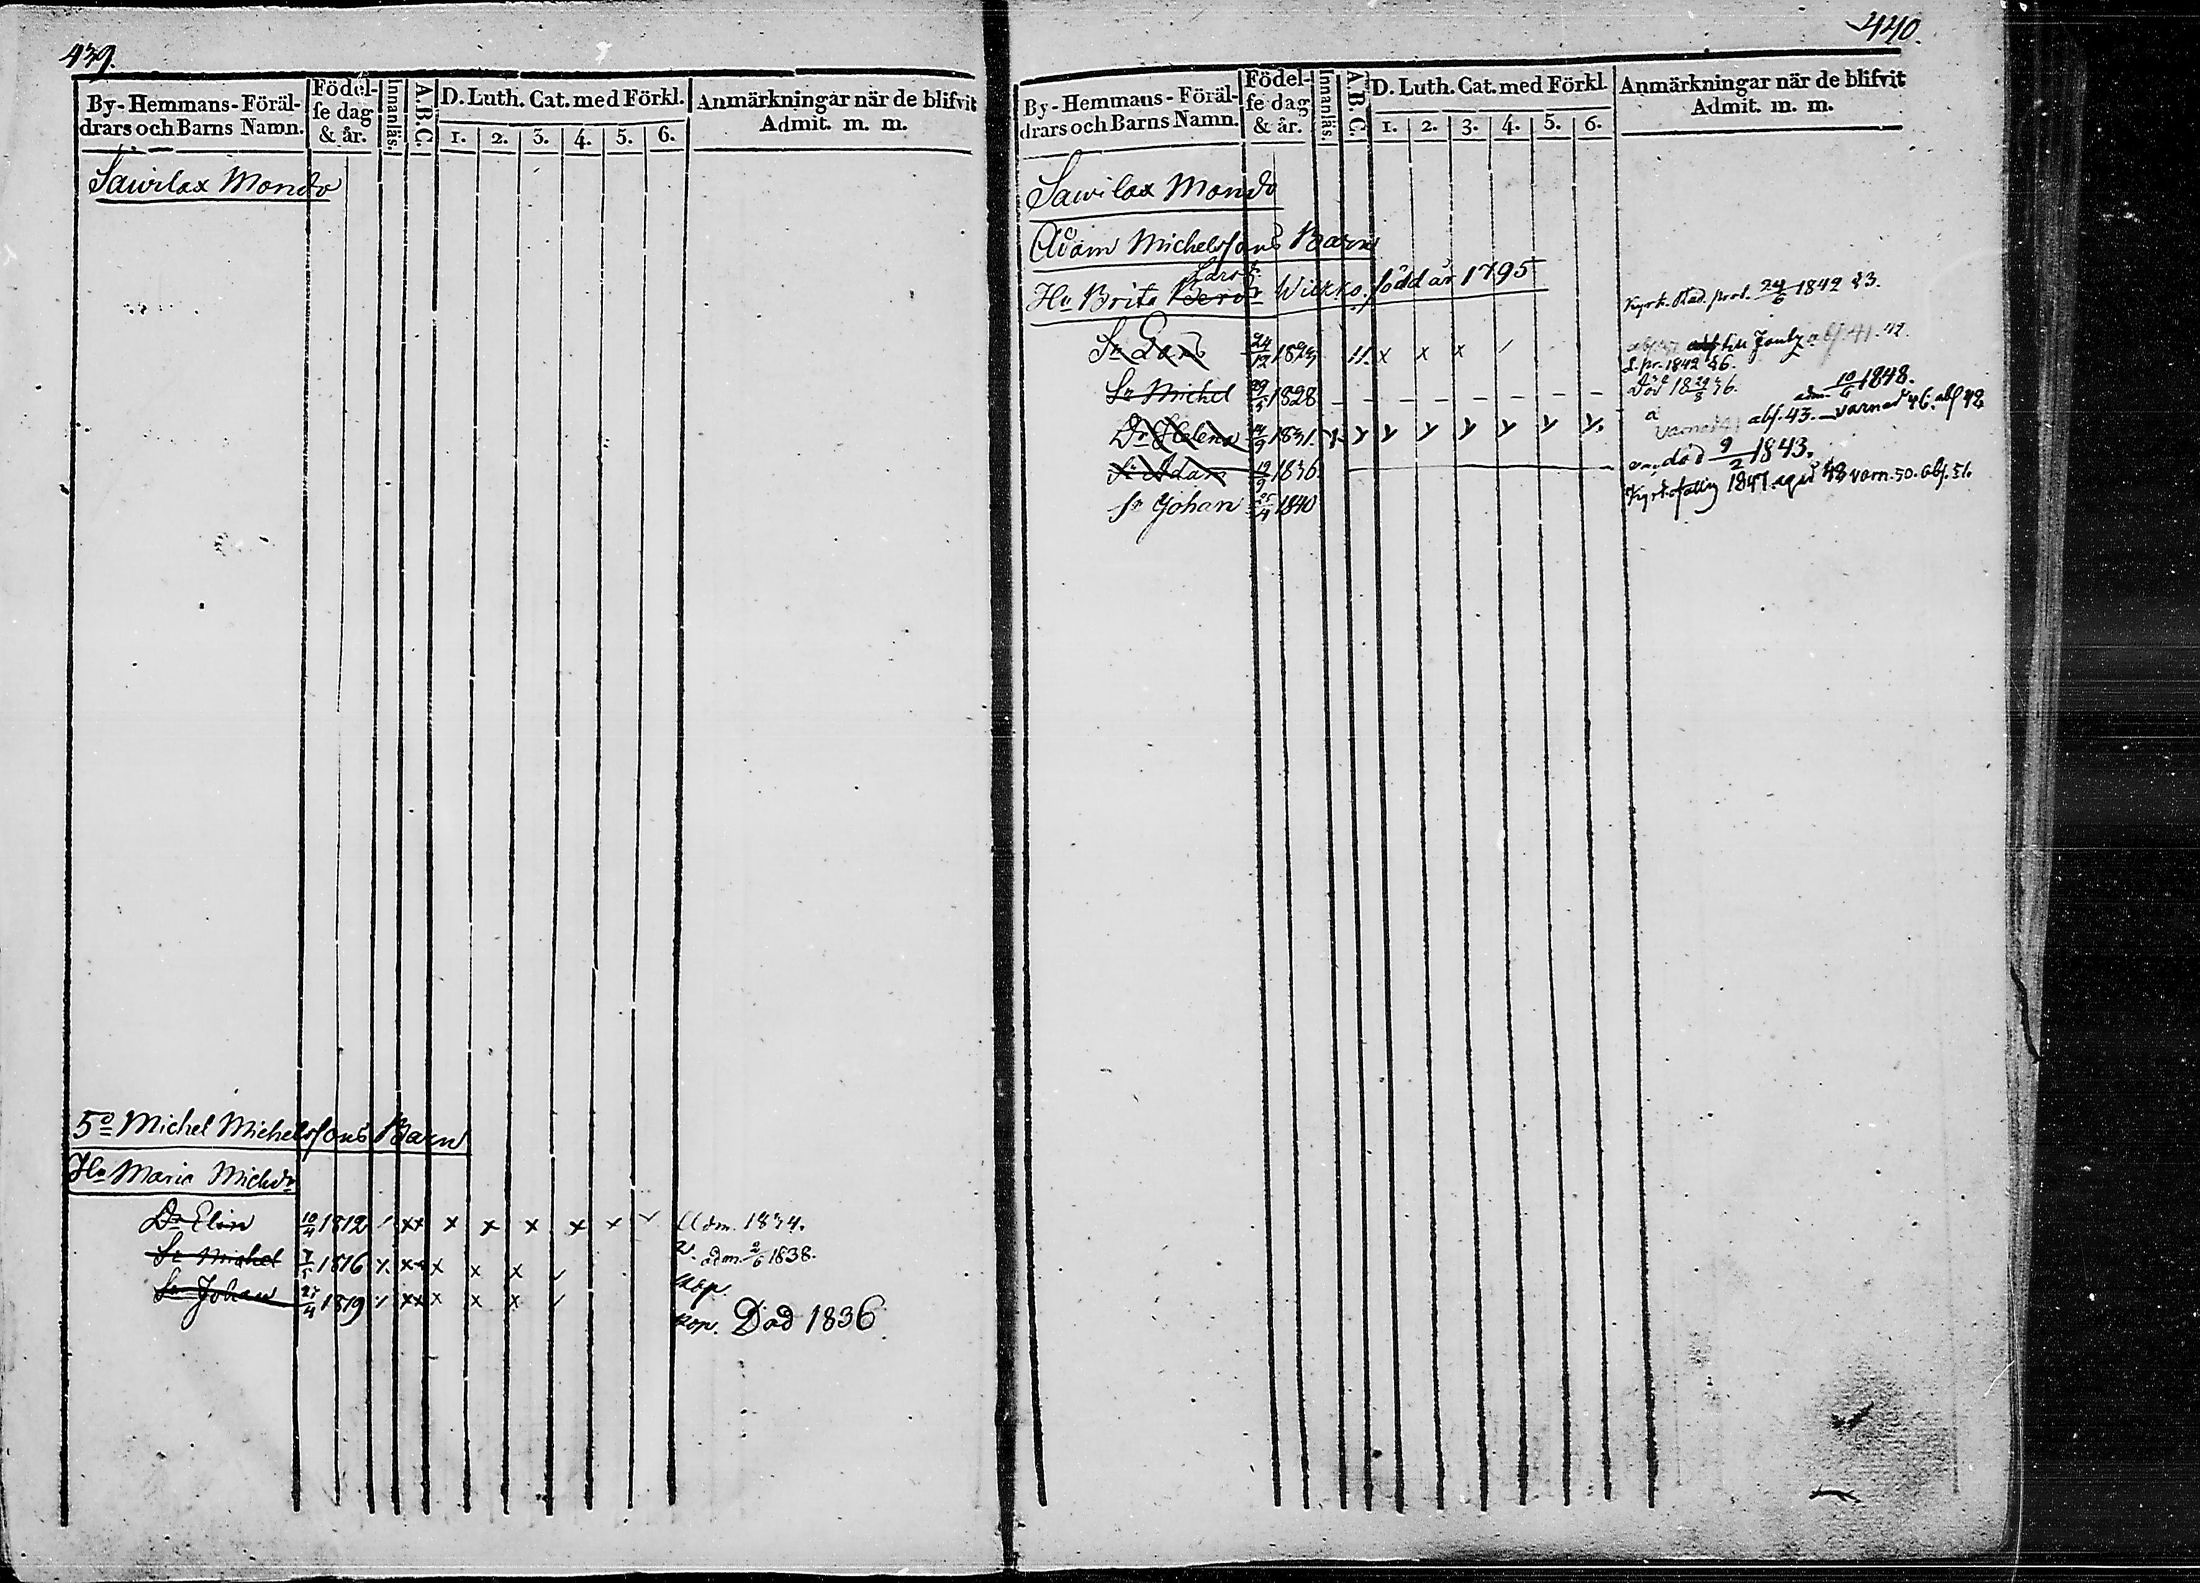 439.
By-Hemmans-Föräl-
drars och Barns Namn.
Födel-
se dag
& år.
Innanläs.
A.B.C.
D. Luth. Cat. med Förkl.
1. 2. 3. 4. 5. 6.
Anmärkningar när de blifvit
Admit. m. m.
Sawilax Mondo
5o Michel Michelssons Barn
Hu Maria Michdr
Dr Elin 10/4 1812 / xx x x x x x Adm. 1834.
Sn Michel 7/5 1816 xx x x x adm. 2/6 1838.
Sn Johan 27/4 1819 xx x x x
Död 1836
440.
By-Hemmans-Föräl-
drars och Barns Namn.
Födel-
se dag
& år.
Innanläs.
A.B.C.
D. Luth. Cat. med Förkl.
1. 2. 3. 4. 5. 6.
Anmärkningar när de blifvit
Admit. m. m.
Sawilax Mondo
Adam Michelssons Barn
Lars
Hu Brita Wilkko född år 1795
Kyrk. Råd. prot. 24/6 1842 §3.
Sn Lars 24/12 x x x
1842 §6.
Sn Michel 29/5 1828 – – – – – – – Död 18
adm. 10/6 1848.
Dr Helena 1831. y y y y y y y. abs. 43. varnad 46. abs
Sn Adam 19/9 1836 död 9/2 1843.
Sn Johan 25/4 1840 1847 varn. 50. abs. 51.